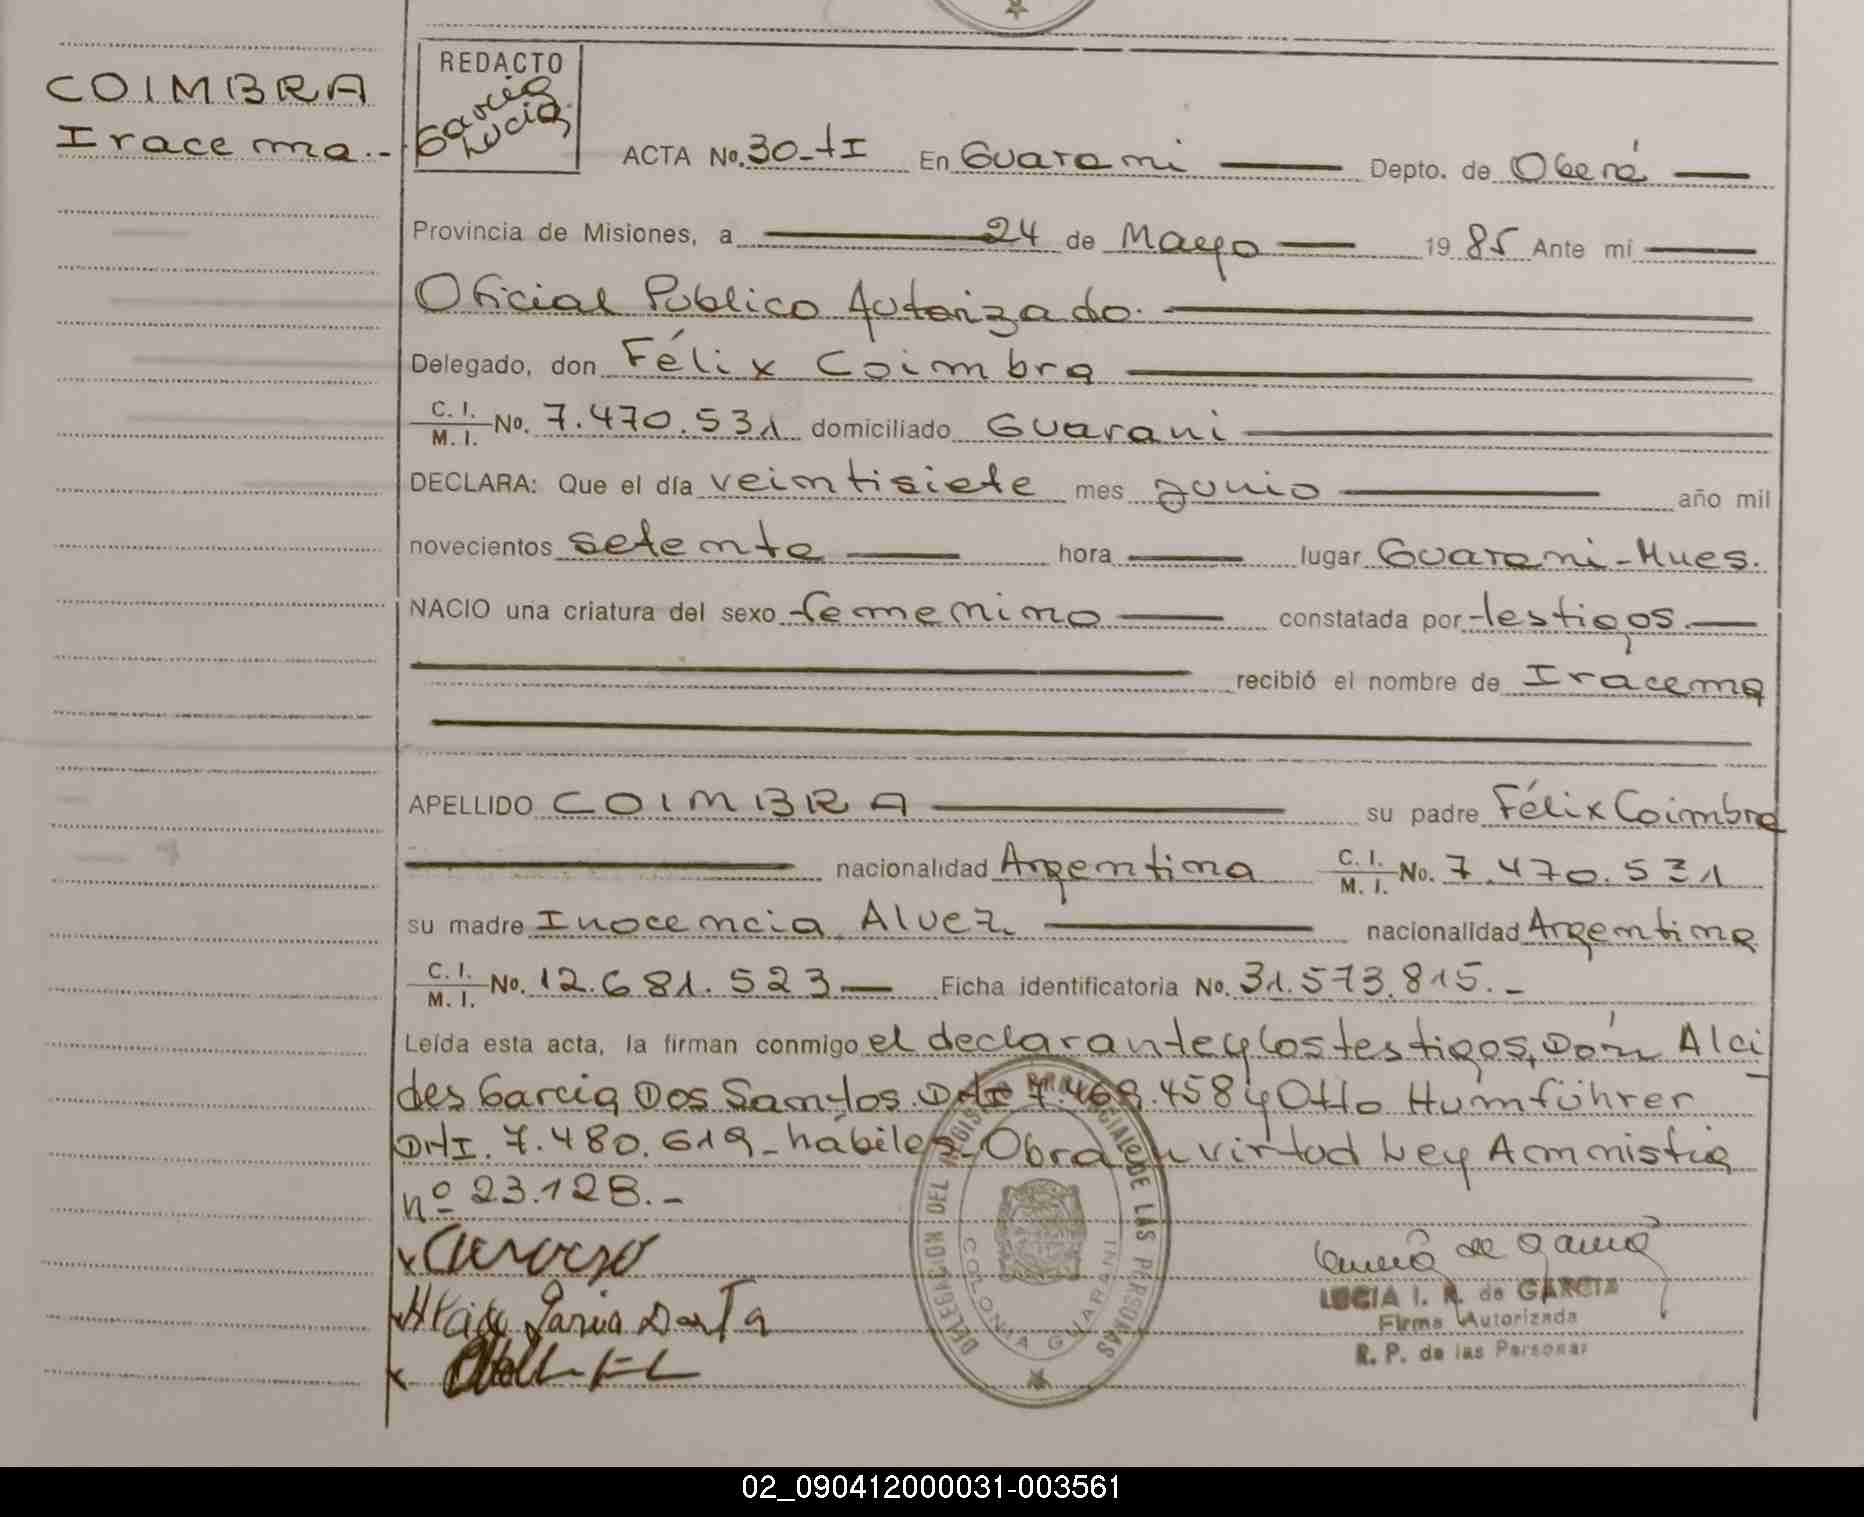 COIMBRA
Iracema.-
REDACTO
Garcia
Lucia.
ACTA No. 30-tI En Guarani Depto. de Oberá
Provincia de Misiones, a 24 de Mayo 1985 Ante mí
Oficial Publico Autorizado.
Delegado, don Félix Coimbra
C. I. / M. I. No. 7.470.531 domiciliado Guarani
DECLARA: Que el día veintisiete mes Junio año mil
novecientos setenta hora lugar Guarani-Mnes.
NACIO una criatura del sexo femenino constatada por testigos.
recibió el nombre de Iracema
APELLIDO COIMBRA su padre Félix Coimbra
nacionalidad Argentina C. I. / M. I. No. 7.470.531
su madre Inocencia Alvez. nacionalidad Argentina
C. I. / M. I. No. 12.681.523 Ficha identificatoria No. 31.573.815.-
Leída esta acta, la firman conmigo el declarante y los testigos, Don Alci
des Garcia Dos Santos. DNI 7.469.458 y Otto Humführer
DNI. 7.480.619-hábiles-Obra en virtud Ley Amnistia
nº 23.128.-
DELEGACION DEL REGISTRO PROVINCIAL DE LAS PERSONAS
COLONIA GUARANI
LUCIA I. R. de GARCIA
Firma Autorizada
R. P. de las Personas
02_090412000031-003561